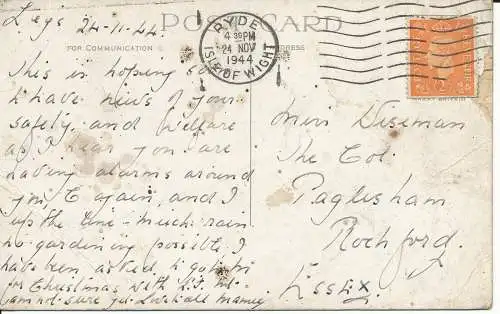 24-11-44
POST CARD
FOR COMMUNICATION
ADDRESS
RYDE
4 30 PM
24 NOV
1944
ISLE OF WIGHT
This is hoping soon
to have news of your
safety and welfare
as I hear you are
having alarms around
you, again, and
up the line - much rain
no gardening possible, I
have been asked to go to
for Christmas with
am not sure yet. Love all
Miss Wiseman
The Cot.
Paglesham
Rochford.
Essex.